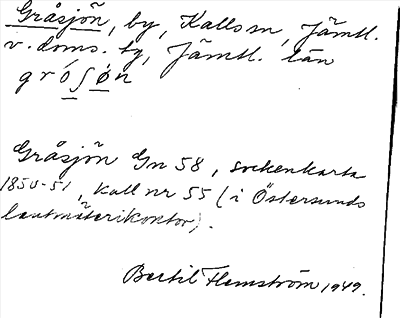 Gråsjön, by, Kalls sn, Jämtl.
v. doms. tg, Jämtl. län
gróʃøn
Gråsjön Gn 58, sockenkarta
1850-51, Kall nr 55 (i Östersunds
lantmäterikontor).
Bertil Flemström 1949.